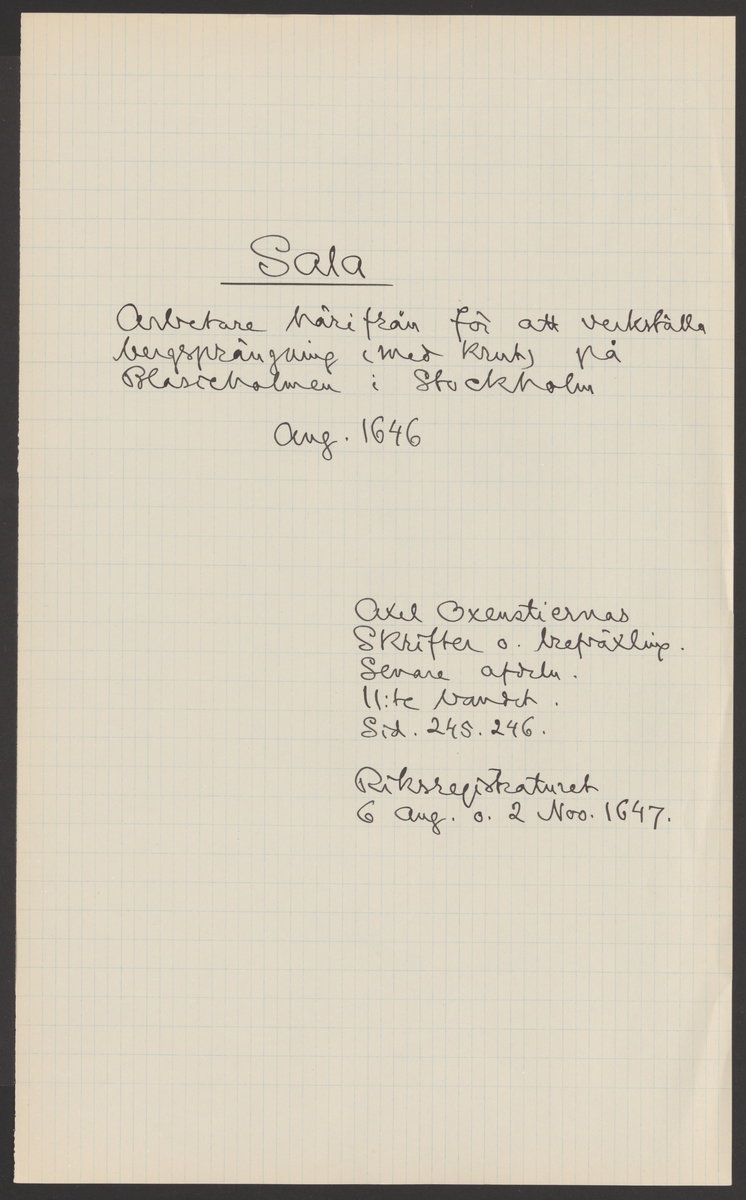 Sala
Arbetare härifrån för att verkställa
bergsprängning (med krut) på
Blasieholmen i Stockholm
Aug. 1646
Axel Oxenstiernas
Skrifter o. brefväxling.
Senare afdeln.
11:te bandet.
Sid. 245. 246.
Riksregistraturet
6 Aug. o. 2 Nov. 1647.